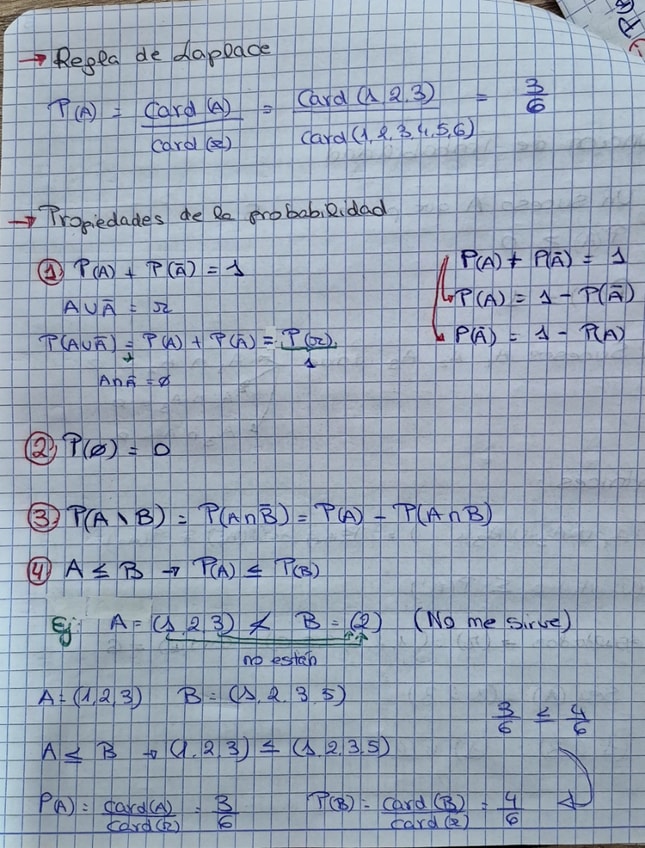 → Regla de Laplace
P(A) = Card (A) / Card (Ω) = Card (1, 2, 3) / Card (1, 2, 3, 4, 5, 6) = 3/6
→ Propiedades de la probabilidad
① P(A) + P(Ā) = 1
A ∪ Ā = Ω
P(A∪Ā) = P(A) + P(Ā) = P(Ω)
1
A∩Ā = ∅
P(A) + P(Ā) = 1
P(A) = 1 - P(Ā)
P(Ā) = 1 - P(A)
② P(∅) = 0
③ P(A \ B) = P(A∩B̄) = P(A) - P(A∩B)
④ A ≤ B → P(A) ≤ P(B)
Ej: A = (1, 2, 3) ≮ B = (2) (No me sirve)
no están
A = (1, 2, 3) B = (1, 2, 3, 5)
3/6 ≤ 4/6
A ≤ B → (1, 2, 3) ≤ (1, 2, 3, 5)
P(A) = Card(A) / Card(Ω) = 3/6 P(B) = Card(B) / Card(Ω) = 4/6